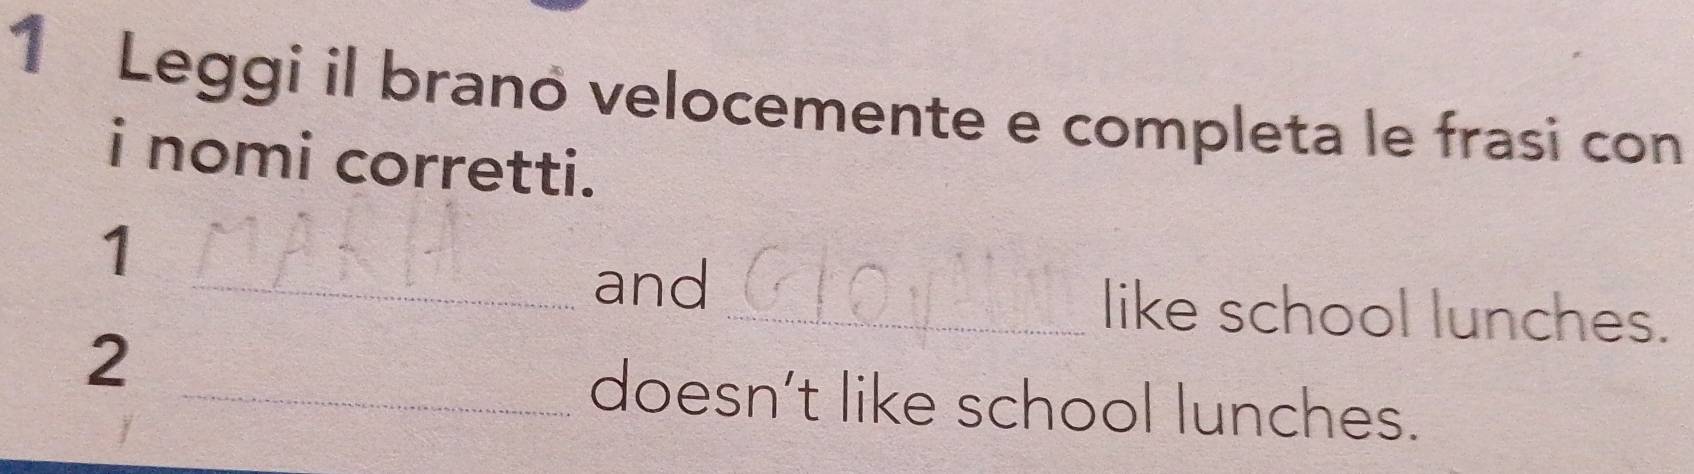 1 Leggi il brano velocemente e completa le frasi con
i nomi corretti.
1 MARIA and like school lunches.
2 doesn't like school lunches.